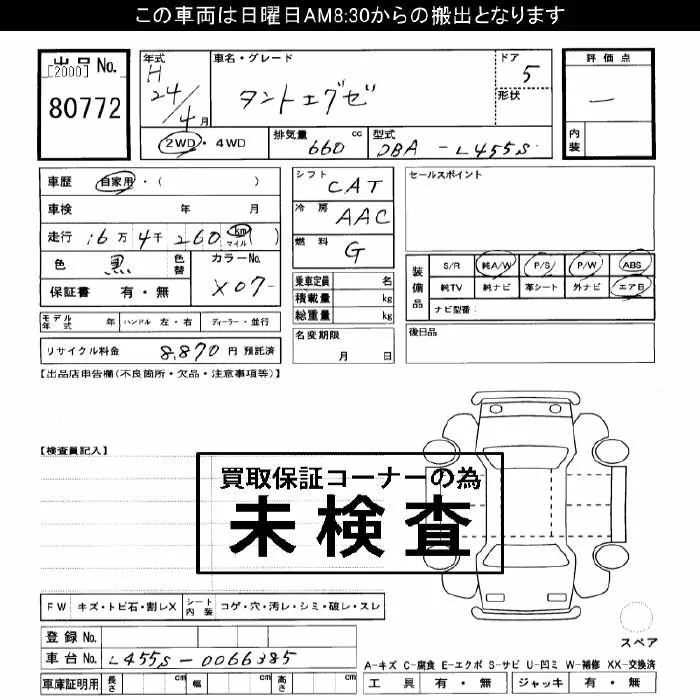 この車両は日曜日AM8:30からの搬出となります
出品No.
[2000]
80772
年式
H
24/
4月
車名・グレード
タントエグゼ
ドア
5
形状
評価点
一
内装
2WD・4WD
排気量 cc
660
型式
DBA-L455S
車歴 自家用・( )
車検 年 月
走行 16万4千260 km マイル ( )
色 黒 色替 カラーNo.
X07-
保証書 有・無
モデル年式 年 ハンドル 左・右 ディーラー・並行
リサイクル料金 8,870円 預託済
シフト CAT
冷房 AAC
燃料 G
乗車定員 名
積載量 kg
総重量 kg
名変期限
月 日
セールスポイント
装備品
S/R 純A/W P/S P/W ABS
純TV 純ナビ 革シート 外ナビ エアB
ナビ型番:
後日品
【出品店申告欄(不良箇所・欠品・注意事項等)】
【検査員記入】
買取保証コーナーの為
未検査
FW キズ・トビ石・割レX シート内装 コゲ・穴・汚レ・シミ・破レ・スレ
登録No.
車台No. L455S-0066385
車庫証明用 長さ cm 幅 cm 高さ cm
スペア
A-キズ C-腐食 E-エクボ S-サビ U-凹ミ W-補修 XX-交換済
工具 有・無 ジャッキ 有・無